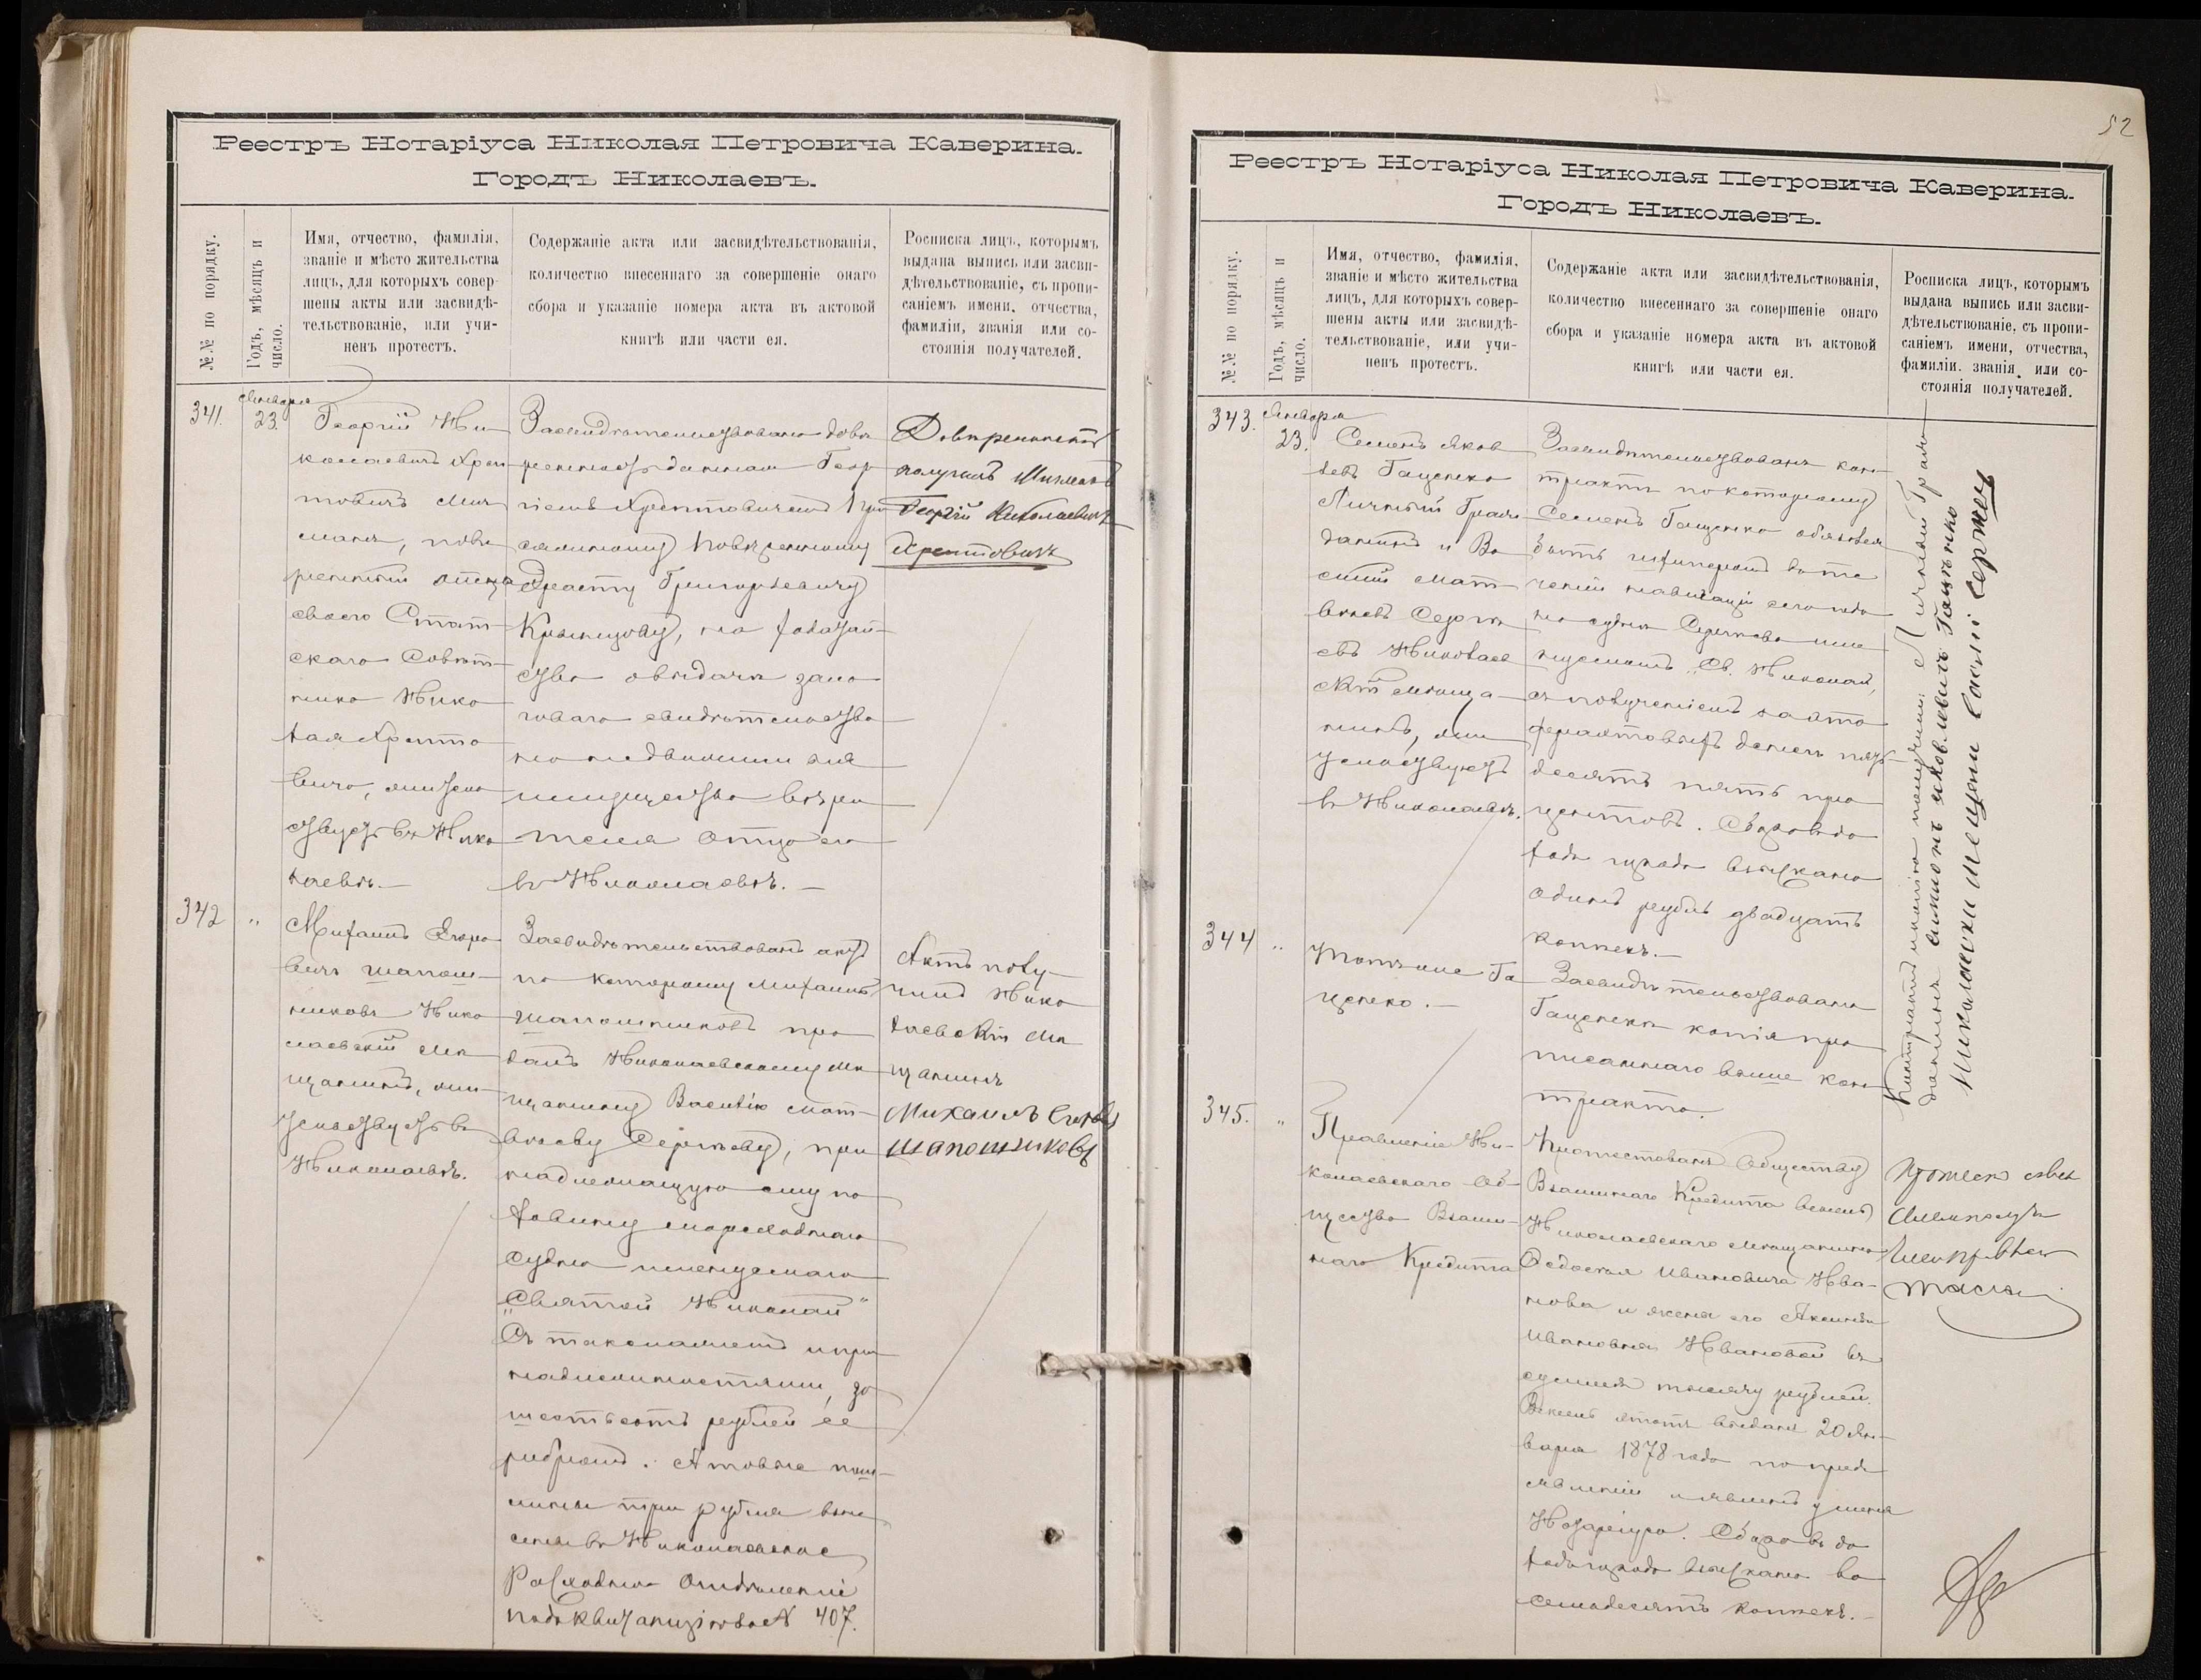 Реестръ Нотаріуса Николая Петровича Каверина.
Городъ Николаевъ.
№№ по порядку.
Годъ, мѣсяцъ и
число.
Имя, отчество, фамилія,
званіе и мѣсто жительства
лицъ, для которыхъ совер-
шены акты или засвидѣ-
тельствованіе, или учи-
ненъ протестъ.
Содержаніе акта или засвидѣтельствованія,
количество внесеннаго за совершеніе онаго
сбора и указаніе номера акта въ актовой
книгѣ или части ея.
Росписка лицъ, которымъ
выдана выпись или засви-
дѣтельствованіе, съ пропи-
саніемъ имени, отчества,
фамиліи, званія или со-
стоянія получателей.
341.
Января
23.
Георгій Ни-
колаевичъ Хреп-
товичъ
повѣ
ренный отца
своего Стат-
скаго Совѣт-
ника Нико
лая Хрепто
вича, жительс
ствуетъ въ Нико
лаевѣ.—
Засвидѣтельствована довѣ
ренность данная Геор-
гіемъ Хрептовичемъ При
сяжному Повѣренному
Эрасту Григорьевичу
на ходатай-
ство о выдачѣ зало
говаго свидѣтельства
на недвижимыя
имущества вѣри
теля отца его
въ Николаевѣ.—
Довѣренность
получилъ
Георгій Николаевичъ
Хрептовичъ
342
"
Михаилъ Егоро
вичъ Шапош-
никовъ Нико
лаевскій Мѣ
щанинъ, жи-
тельствуетъ въ
Николаевѣ.
Засвидѣтельствованъ актъ
по которому Михаилъ
Шапошниковъ про
далъ Николаевскому мѣ
щанину Василію Мат-
вѣеву Сержеву, при
надлежащую ему по
ловину мореходнаго
судна именуемаго
„Святой Николай"
Съ такелажемъ и при
надлежностями, за
шестьсотъ рублей се
ребромъ. Актовыя пош-
лины три рубля вне
сены въ Николаевское
Расходное Отдѣленіе
подъ квитанціею № 407.
Актъ полу-
чилъ Нико
лаевскій Мѣ
щанинъ
Михаилъ Егоровъ
Шапошниковъ
52
Реестръ Нотаріуса Николая Петровича Каверина.
Городъ Николаевъ.
№№ по порядку.
Годъ, мѣсяцъ и
число.
Имя, отчество, фамилія,
званіе и мѣсто жительства
лицъ, для которыхъ совер-
шены акты или засвидѣ-
тельствованіе, или учи-
ненъ протестъ.
Содержаніе акта или засвидѣтельствованія,
количество внесеннаго за совершеніе онаго
сбора и указаніе номера акта въ актовой
книгѣ или части ея.
Росписка лицъ, которымъ
выдана выпись или засви-
дѣтельствованіе, съ пропи-
саніемъ имени, отчества,
фамиліи, званія или со-
стоянія получателей.
343.
Января
23.
Семенъ Яков
левъ Гаценко
Личный Граж
данинъ и Ва
силій Мат
вѣевъ Серж
евъ Николаев
скій мѣща-
нинъ, жи
тельствуютъ
въ Николаевѣ.
Засвидѣтельствованъ кон-
трактъ по которому
Семенъ Гаценко обязался
быть шкиперомъ въ те
ченіи навигаціи сего года
на суднѣ Сержева име
нуемомъ „Св. Николай",
съ полученіемъ за это
фрахтовыхъ денегъ пять
десятъ пять про
центовъ. Сбора въ до
ходъ города взыскано
одинъ рубль двадцать
копѣекъ.—
Контрактъ и копію получили: Личный Граж-
данинъ Симіонъ Яковлевичъ Гаценко
Николаевски Мещени Васілі Сержев
344
"
Тотъ же Га
ценко.—
Засвидѣтельствована
Гаценкѣ копія про
писаннаго выше кон-
тракта.
345.
"
Правленіе Ни-
колаевскаго Об-
щества Взаим-
наго Кредита
Протестованъ Обществу
Взаимнаго Кредита вексель
Николаевскаго мѣщанина
Федосея Ивановича Ива-
нова и жены его Аксиньи
Ивановны Ивановой въ
суммѣ тысячу рублей.
Вексель этотъ выданъ 20 Ян-
варя 1878 года по предъ
явленіи и явленъ у меня
Нотаріуса. Сбора въ до
ходъ города взыскано во
семьдесятъ копѣекъ.—